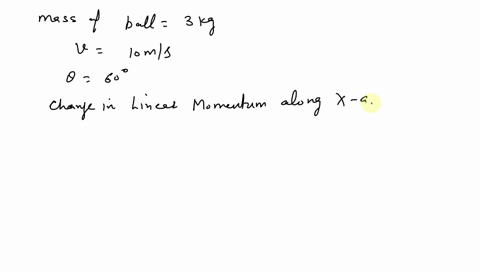 mass of ball = 3 kg
v = 10 m/s
θ = 60°
change in Linear Momentum along X-a.